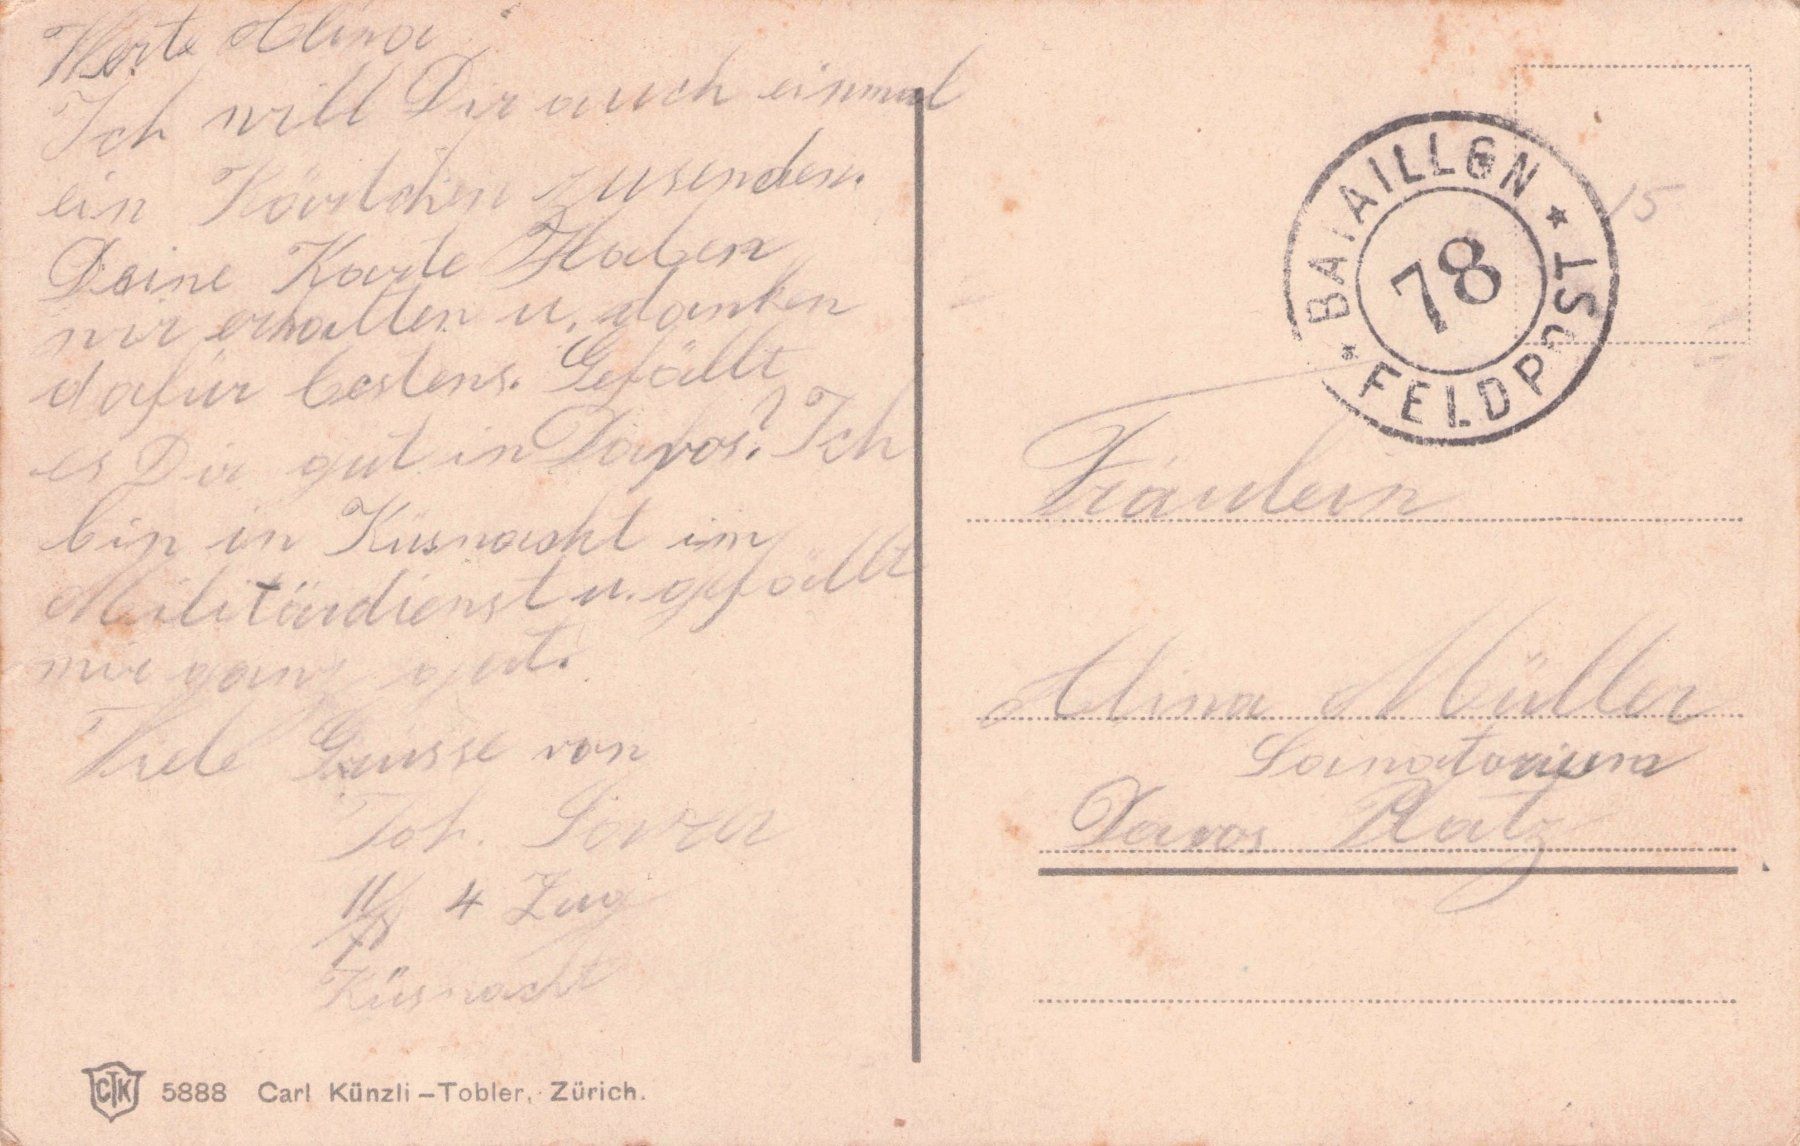 Werte Alina
Ich will Dir auch einmal
ein Kärtchen zusenden.
Deine Karte Haben
wir erhalten u. danken
dafür bestens. Gefällt
es Dir gut in Davos? Ich
bin in Küsnacht im
Militärdienst u. gefällt
mir ganz gut.
Viele Grüsse von
Joh.
4 Zug
Küsnacht
CTK 5888 Carl Künzli-Tobler, Zürich.
BATAILLON
78
FELDPOST
15
Fräulein
Alina Müller
Sanatorium
Davos Platz